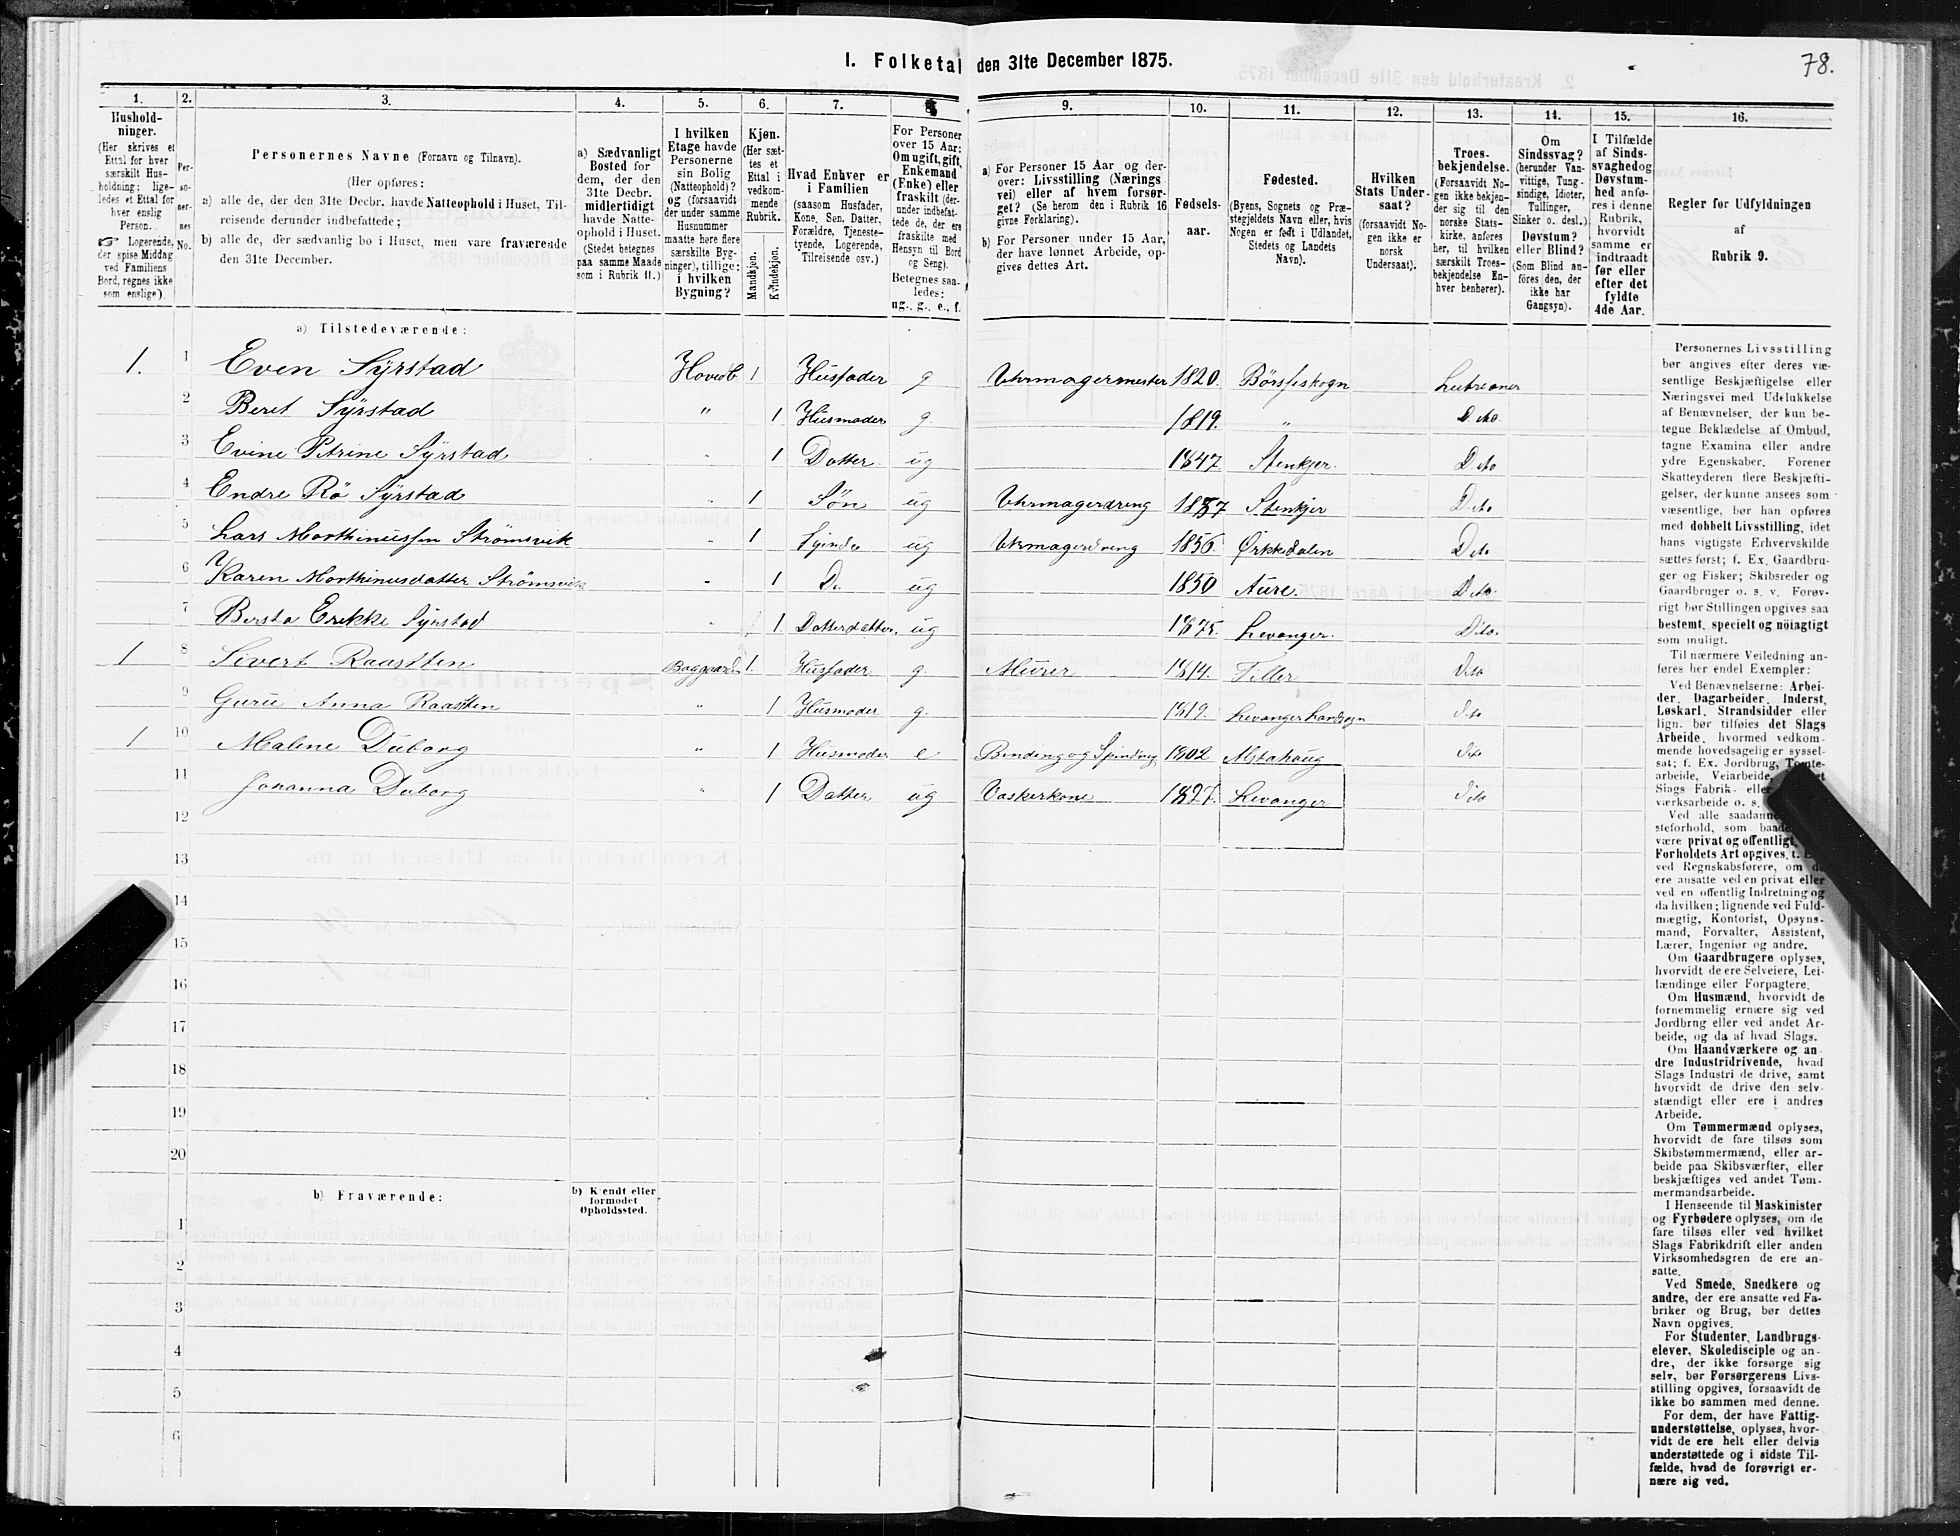 78.
1. Folketal den 31te December 1875.
1. 2. 3. 4. 5. 6. 7. 8. 9. 10. 11. 12. 13. 14. 15. 16.
Hushold-
ninger.
(Her skrives et
Ettal for hver
særskilt Hus-
holdning; lige-
ledes et Ettal for
hver enslig
Person.
☞ Logerende,
der spise Middag
ved Familiens
Bord, regnes ikke
som enslige).
Per-
so-
ner-
nes
No.
Personernes Navne (Fornavn og Tilnavn).
(Her opføres:
a) alle de, der den 31te Decbr. havde Natteophold i Huset, Til-
reisende derunder indbefattede;
b) alle de, der sædvanlig bo i Huset, men vare fraværende
den 31te December.
a) Sædvanligt
Bosted for
dem, der den
31te Decbr.
midlertidigt
havde Natte-
ophold i Huset.
(Stedet betegnes
paa samme Maade
som i Rubrik 11.)
I hvilken
Etage havde
Personerne
sin Bolig
(Natteophold)?
og (forsaavidt
der under samme
Husnummer
maatte høre flere
særskilte Byg-
ninger), tillige:
i hvilken
Bygning?
Kjøn.
(Her sæt-
tes et
Ettal i
vedkom-
mende
Rubrik.
Mandkjøn.
Kvindekjøn.
Hvad Enhver er
i Familien
(saasom Husfader,
Kone, Søn, Datter,
Forældre, Tjeneste-
tyende, Logerende,
Tilreisende osv.)
For Personer
over 15 Aar:
Om ugift, gift,
Enkemand
(Enke) eller
fraskilt (der-
under indbefat-
tede de, der ere
fraskilte med
Hensyn til Bord
og Seng).
Betegnes saa-
ledes:
ug., g., e., f.
a) For Personer 15 Aar og der-
over: Livsstilling (Nærings
vei) eller af hvem forsør-
get? (Se herom den i Rubrik 16
givne Forklaring).
b) For Personer under 15 Aar,
der have lønnet Arbeide, op-
gives dettes Art.
Fødsels-
aar.
Fødested.
(Byens, Sognets og Præ-
stegjeldets Navn eller, hvis
Nogen er født i Udlandet,
Stedets og Landets
Navn).
Hvilken
Stats Under-
saat?
(forsaavidt No-
gen ikke er
norsk
Undersaat).
Troes-
bekjendelse.
(Forsaavidt No-
gen ikke bekjen-
der sig til den
norske Stats-
kirke, anføres
her, til hvilken
særskilt Troes-
bekjendelse En-
hver henhører).
Om
Sindssvag?
(herunder Van-
vittige, Tung-
sindige, Idioter,
Tullinger,
Sinker o. desl.)
Døvstum?
eller Blind?
(Som Blind an-
føres den, der
ikke har
Gangsyn).
I Tilfælde
af Sinds-
svaghed og
Døvstum-
hed anfø-
res i denne
Rubrik,
hvorvidt
samme er
indtraadt
før eller
efter det
fyldte
4de Aar.
Regler for Udfyldningen
af
Rubrik 9.
a) Tilstedeværende:
1. 1 Even Syrstad Hovedb 1 Husfader g Uhrmagermester 1820. Børsfeskogn Lutreaner
2 Beret Syrstad " 1 Husmoder g. 1819. " Dito.
3 Evine Petrine Syrstad " 1 Datter. ug 1847. Stenkjer. Dito
4 Endre Rö Syrstad " 1 Søn ug Uhrmagerdreng 1857 Stenkjer Dito
5 Lars Morthinussen Strömsvik 1 ug Uhrmagerdreng 1856. Ørkedalen Dito
6 Karen Morthinusdatter Strömsvik " 1 Do ug 1850 Aure. Dito.
7 Bersta Erikke Syrstad " 1 Datterdatter. ug 1875. Levanger. Dito.
1 8 Sivert Raastten Baggaard 1. Husfader g. Murer 1814. Tiller Dito
9 Guru Anna Raastten " 1 Husmoder g. 1819. Levanger Landsogn dito
1 10 Malene Duborg " 1 Husmoder e Binding og Spinding 1802 Alstahoug dito
11 Johanna Duborg " 1 Datter ug Vaskerkone 1827. Levanger dito
12
13
14
15
16
17
18
19
20
b) Fraværende:
b) Kjendt eller
formodet
Opholdssted.
1
2
3
4
5
6
Personernes Livsstilling
bør angives efter deres væ-
sentlige Beskjæftigelse eller
Næringsvei med Udelukkelse
af Benævnelser, der kun be-
tegne Beklædelse af Ombud,
tagne Examina eller andre
ydre Egenskaber. Forener
Skatteyderen flere Beskjæfti-
gelser, der kunne ansees som
væsentlige, bør han opføres
med dobbelt Livsstilling, idet
hans vigtigste Erhvervskilde
sættes først; f. Ex. Gaardbru-
ger og Fisker; Skibsreder og
Gaardbruger o. s. v. Forøv-
rigt bør Stillingen opgives saa
bestemt, specielt og nøiagtigt
som muligt.
Til nærmere Veiledning an-
føres her endel Exempler:
Ved Benævnelserne: Arbei-
der, Dagarbeider, Inderst,
Løskarl, Strandsidder eller
lign. bør tilføies det Slags
Arbeide, hvormed vedkom-
mende hovedsagelig er syssel-
sat; f. Ex. Jordbrug, Tomte-
arbeide, Veiarbeide,
Slags Fabrik- eller
værksarbeide o. s.
Ved alle saadanne
steforhold, som baade
være privat og offentligt,
Forholdets Art opgives, t. Ex.
ved Regnskabsførere, om de
ere ansatte ved en privat eller
ved en offentlig Indretning og
da hvilken; lignende ved Fuld-
mægtig, Kontorist, Opsyns-
mand, Forvalter, Assistent,
Lærer, Ingeniør og andre.
Om Gaardbrugere oplyses,
hvorvidt de ere Selveiere, Lei-
lændinge eller Forpagtere.
Om Husmænd, hvorvidt de
fornemmelig ernære sig ved
Jordbrug eller ved andet Ar-
beide, og da af hvad Slags.
Om Haandværkere og an-
dre Industridrivende, hvad
Slags Industri de drive, samt
hvorvidt de drive den selv-
stændigt eller ere i andres
Arbeide.
Om Tømmermænd oplyses,
hvorvidt de fare tilsøs som
Skibstømmermænd, eller ar-
beide paa Skibsværfter, eller
beskjæftiges ved andet Tøm-
mermandsarbeide.
I Henseende til Maskinister
og Fyrbødere oplyses, om de
fare tilsøs eller ved hvilket
Slags Fabrikdrift eller anden
Virksomhedsgren de ere an-
satte.
Ved Smede, Snedkere og
andre, der ere ansatte ved Fa-
briker og Brug, bør dettes
Navn opgives.
For Studenter, Landbrugs-
elever, Skoledisciple og an-
dre, der ikke forsørge sig
selv, bør Forsørgerens Livs-
stilling opgives, forsaavidt de
ikke bo sammen med denne.
For dem, der have Fattig-
understøttelse, oplyses, hvor-
vidt de ere helt eller delvis
understøttede og i sidste Til-
fælde, hvad de forøvrigt er-
nære sig ved.